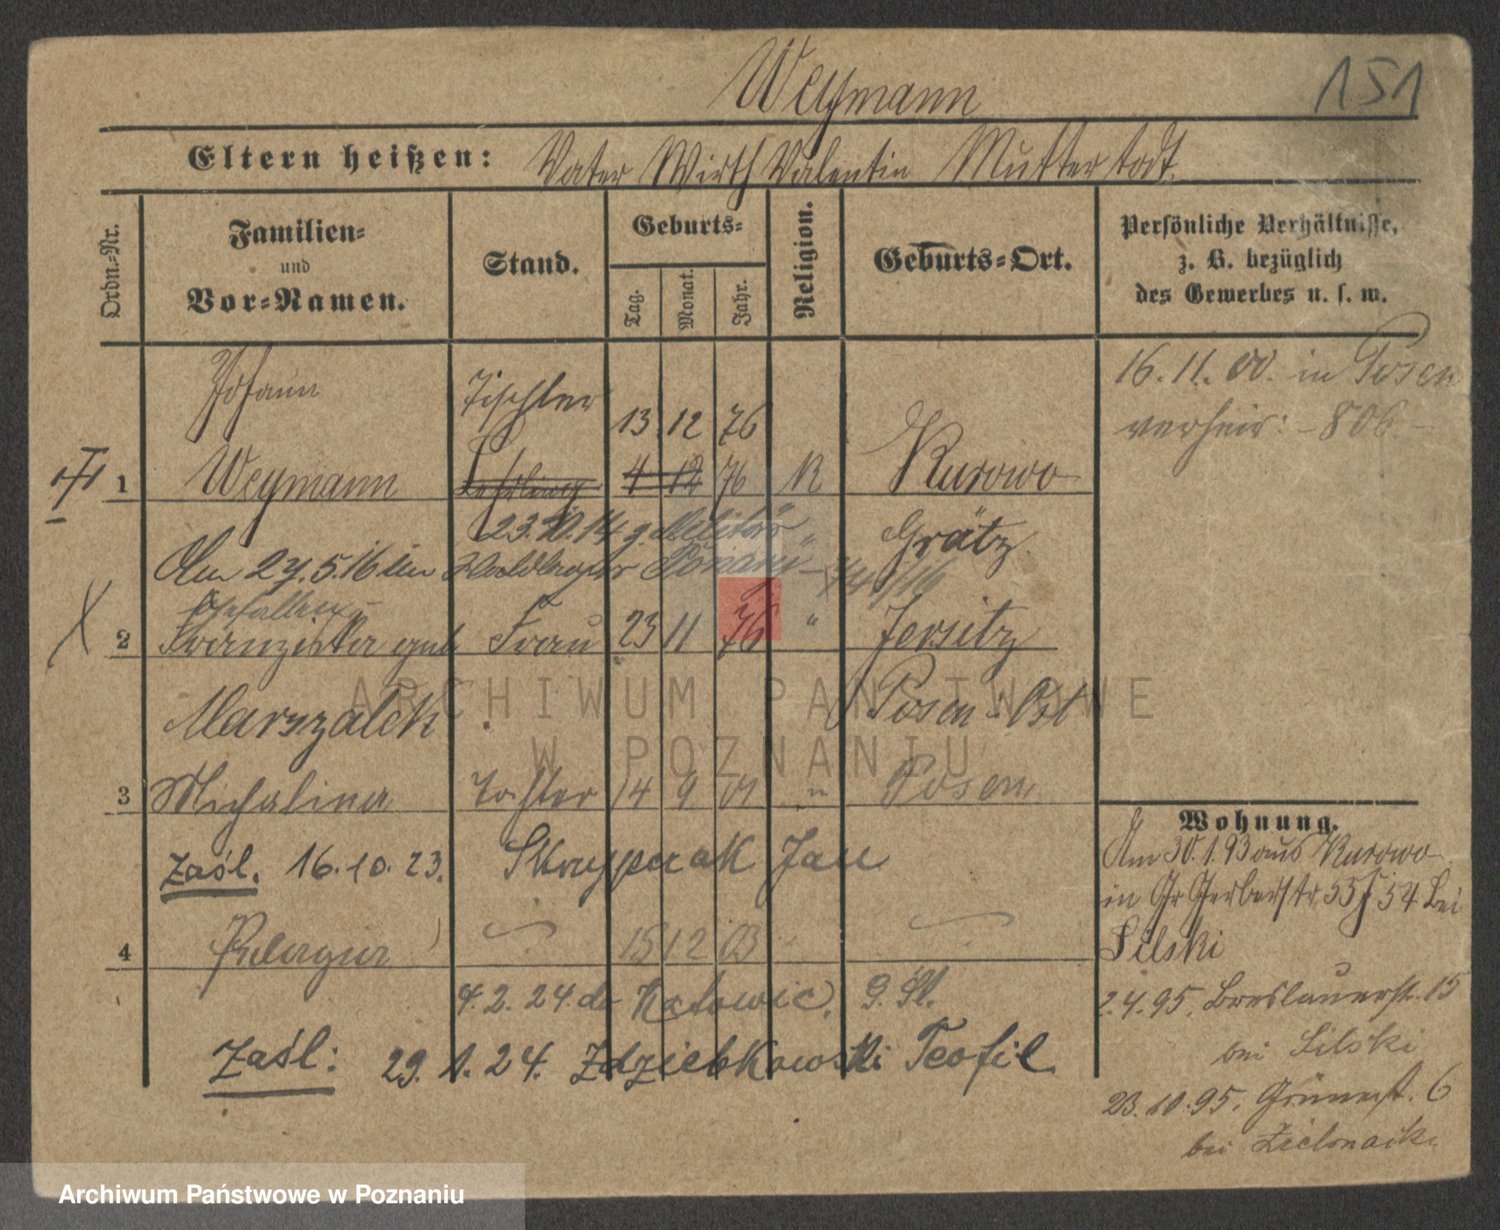 Weymann
151
Eltern heißen: Vater Wirth Valentin Mutter todt.
Ordn.-Nr.
Familien-
und
Vor-Namen.
Stand.
Geburts-
Tag.
Monat.
Jahr.
Religion.
Geburts-Ort.
Persönliche Verhältnisse,
z. B. bezüglich
des Gewerbes u. s. w.
Johann Tischler 13 12 76
1 Weymann Lehrling 4 12 76 K Kurowo
16. 11. 00. in Posen
verheir: - 806 -
23. 14 z. Militär " Grätz
Am 27.5.16 im
gefallen
2 Franziska geb Frau 23 11 76 " Jersitz
Marszalek Posen-
3 Michalina Tochter 14 9 01 " Posen
zaśl. 16. 10. 23. Jan
4 Pelagia 15 12 03
4. 2. 24. do Katowic, G. Śl.
zaśl: 29. 1. 24. Zdziebkowski Teofil
Wohnung.
Am 30.1.93 aus Kurowo
in Gr Gerberstr 55 54 bei
Silski
2.4.95. Breslauerst. 15
bei Silski
23.10.95. Grünest. 6
bei
ARCHIWUM PAŃSTWOWE
W POZNANIU
Archiwum Państwowe w Poznaniu